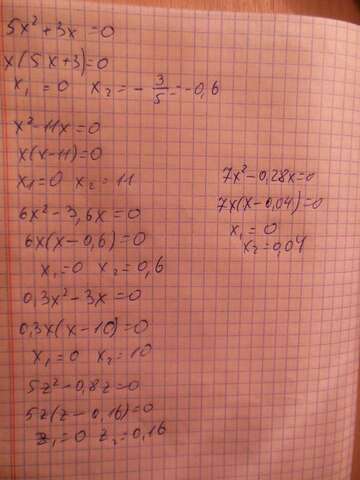 5x² + 3x = 0
x(5x+3)=0
x₁ = 0 x₂ = - 3/5 = -0,6
x² - 11x = 0
x(x-11)=0
x₁=0 x₂ = 11
6x² - 3,6x = 0
6x(x-0,6)=0
x₁=0 x₂=0,6
0,3x² - 3x = 0
0,3x(x-10)=0
x₁=0 x₂=10
5z² - 0,8z = 0
5z(z-0,16)=0
z₁=0 z₂=0,16
7x² - 0,28x=0
7x(x-0,04)=0
x₁ = 0
x₂=0,04